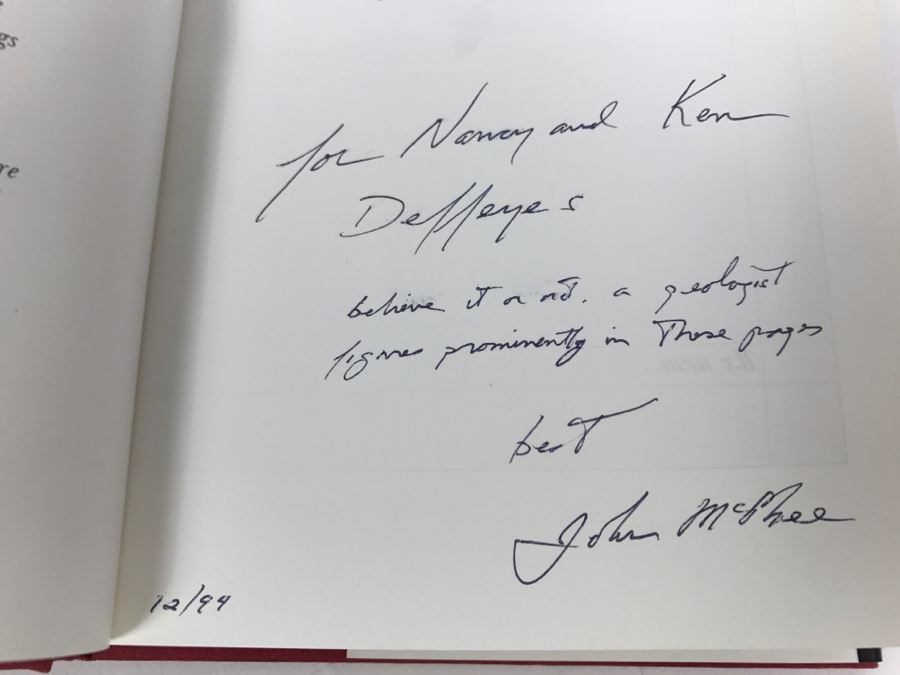 gs
re
for Nancy and Ken
Deffeyes
believe it or not, a geologist
figures prominently in these pages
best
John McPhee
12/94